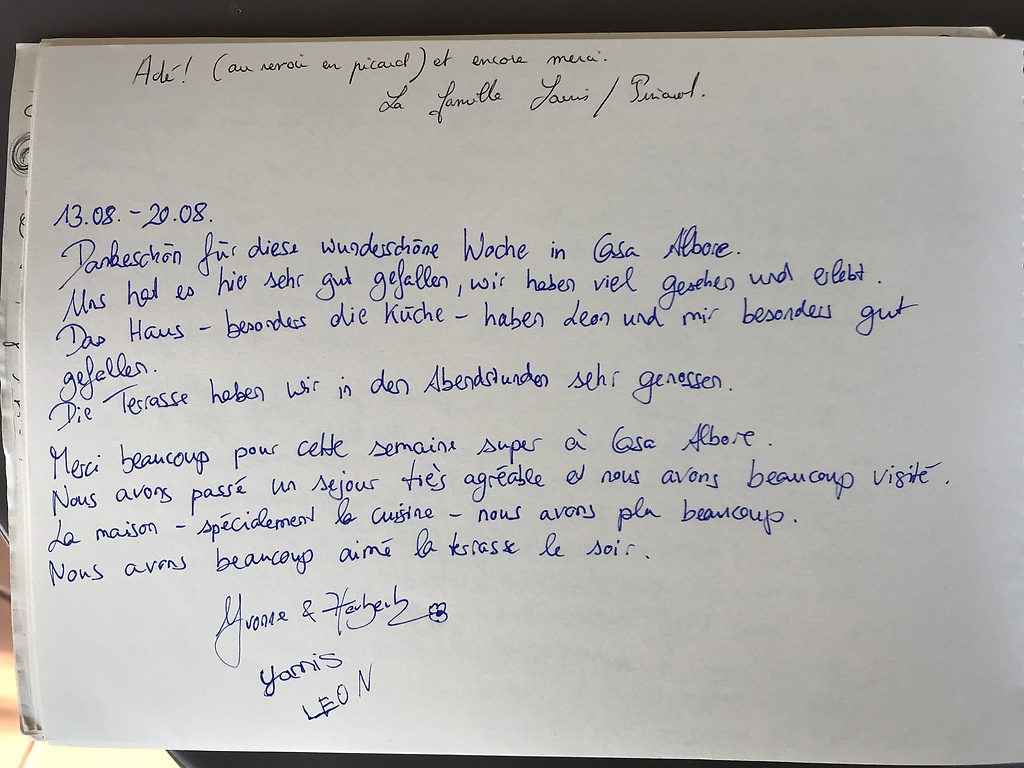 Adé! (au revoir en picard) et encore merci.
La famille
13.08. - 20.08.
Dankeschön für diese wunderschöne Woche in Casa Albore.
Uns hat es hier sehr gut gefallen, wir haben viel gesehen und erlebt.
Das Haus - besonders die Küche - haben Leon und mir besonders gut
gefallen.
Die Terrasse haben wir in den Abendstunden sehr genossen.
Merci beaucoup pour cette semaine super à Casa Albore.
Nous avons passé un séjour très agréable et nous avons beaucoup visité.
La maison - spécialement la cuisine - nous avons plu beaucoup.
Nous avons beaucoup aimé la terrasse le soir.
Yvonne & Herbert
Yannis
LEON